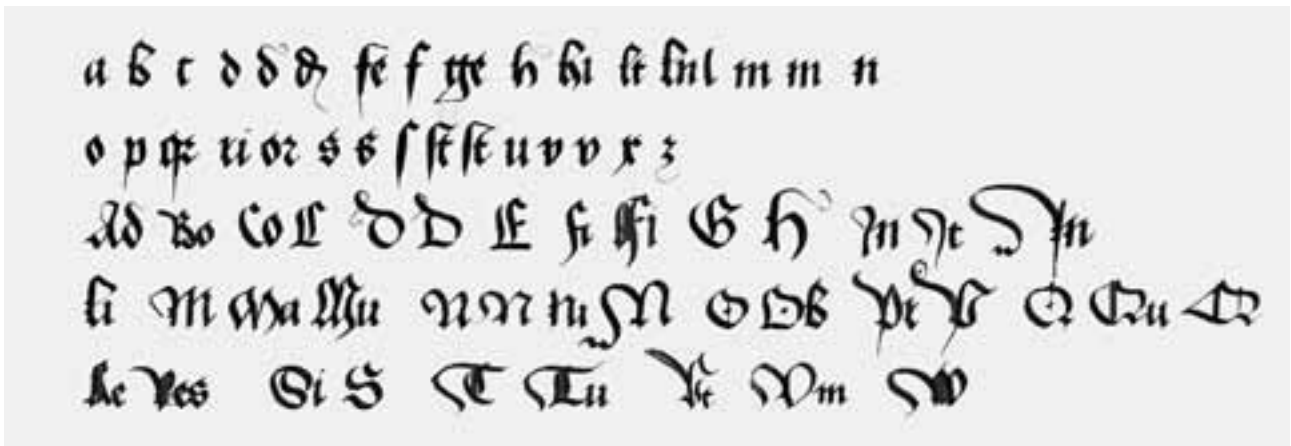 a b c d d d fe f ge h hi lt knl m m n
o p qz ri or s s ſ ſt ſt u v v x z
Ad Bo Co C D D E fi ffi G H In It In
li M Ma Mu N N ni N O Ob Pt P Q Qu Q
Re Res Si S T Tu Vt Vm W